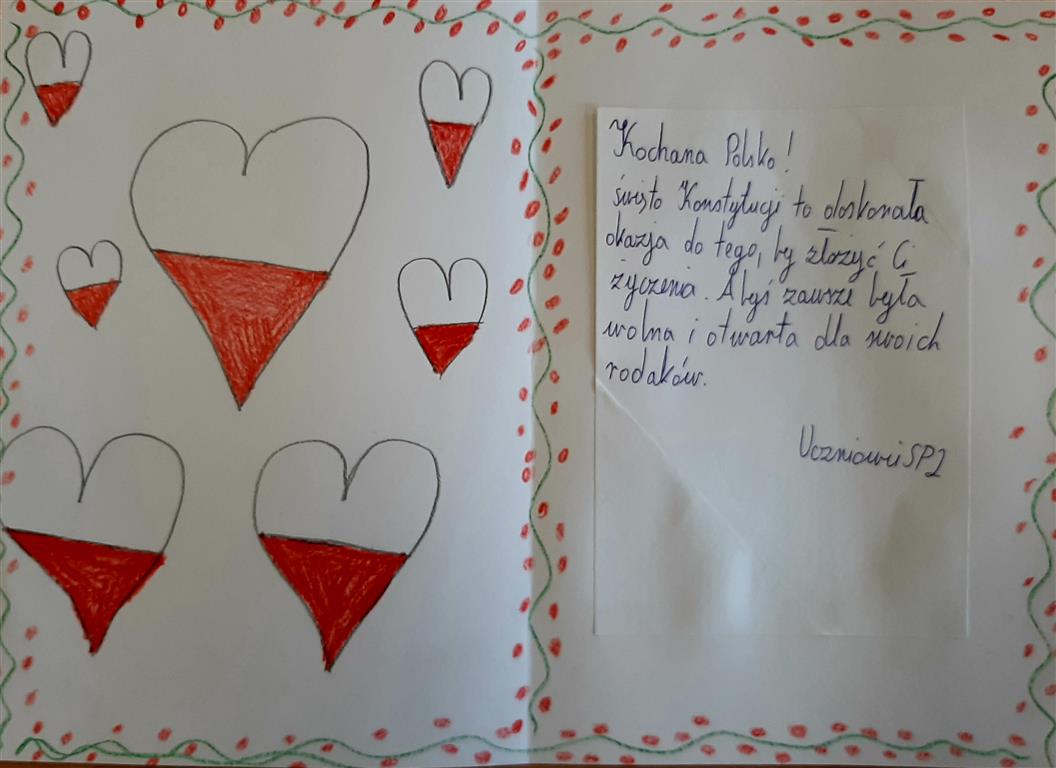 Kochana Polsko!
święto Konstytucji to doskonała
okazja do tego, by złożyć Ci
życzenia. Abyś zawsze była
wolna i otwarta dla swoich
rodaków.
Uczniowie SP2